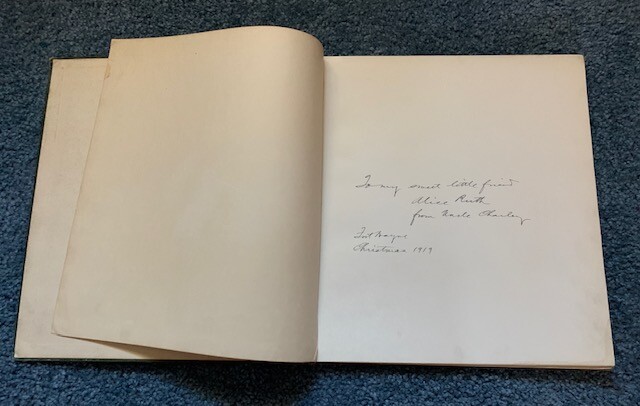 To my sweet little friend
Alice Ruth
from Uncle Charley
Fort Wayne
Christmas 1919